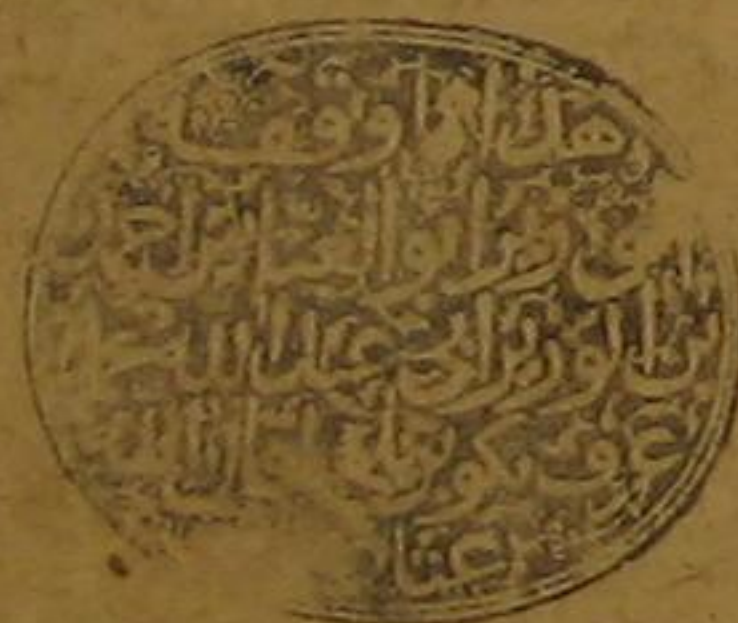 هذا ما وقف
الوزير ابو العباس احمد
بن الوزير ابي عبد الله محمد
عرف بكوبريلي اقال الله
عثار